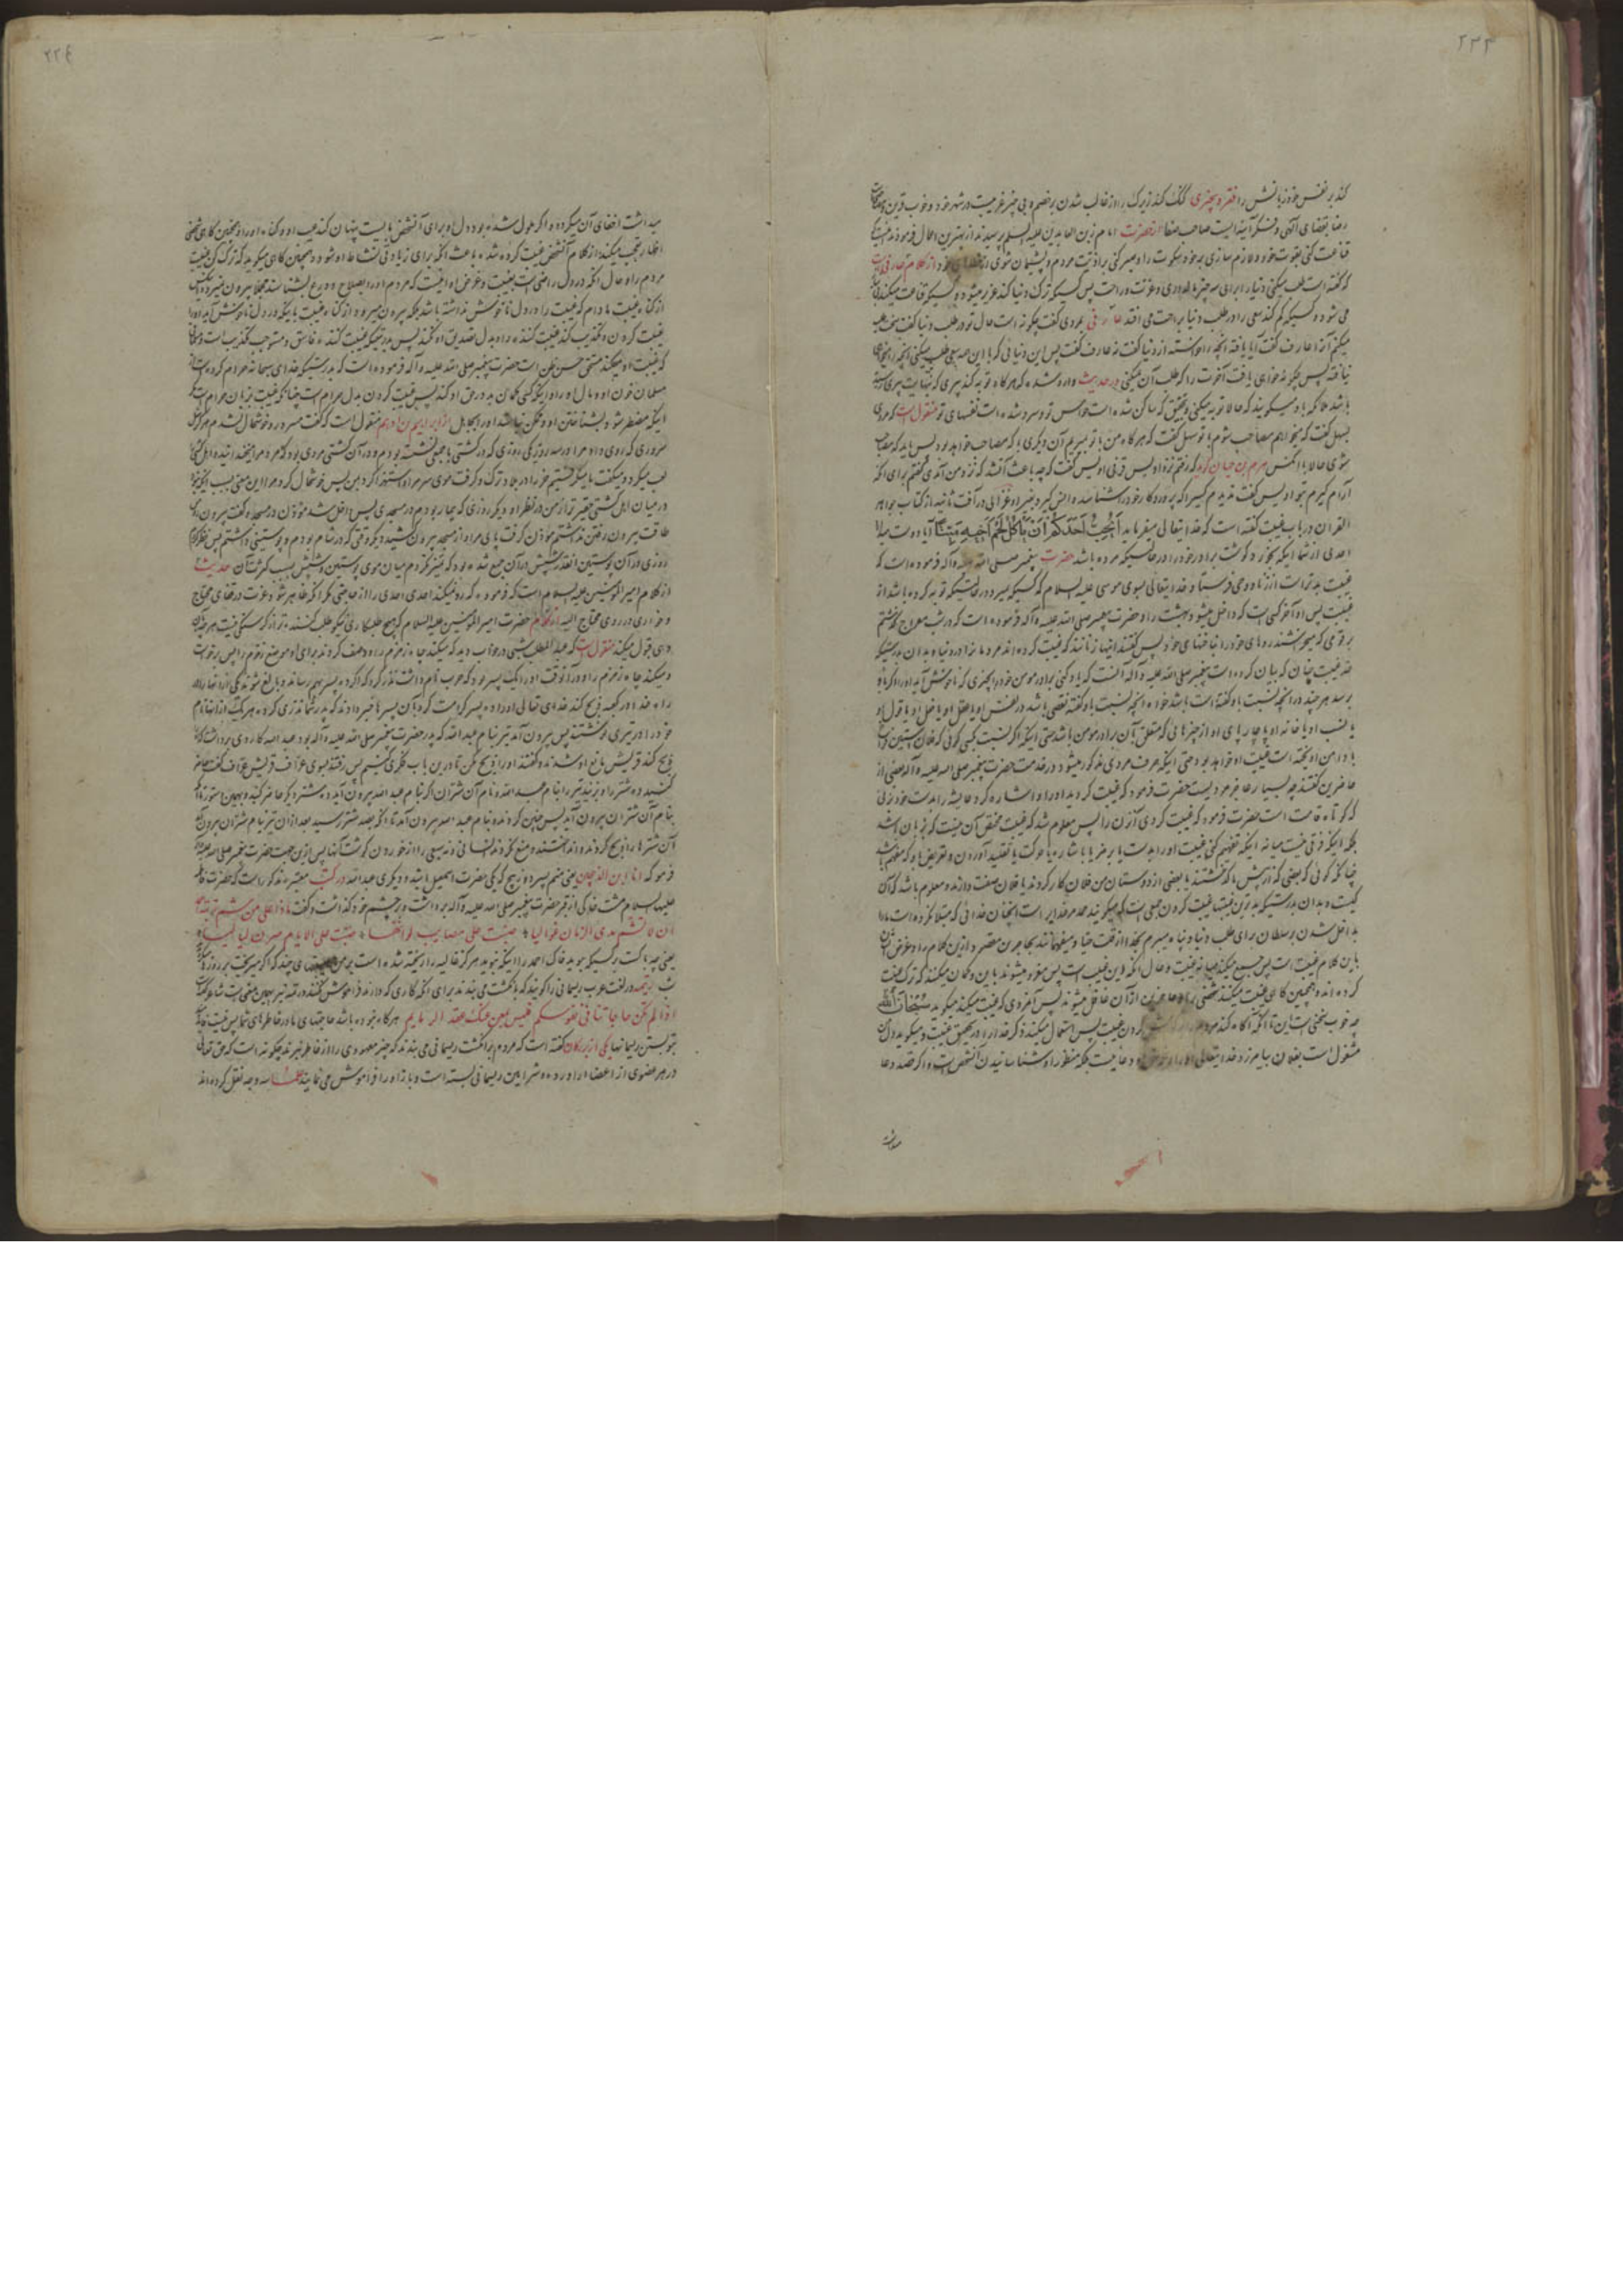 ۲۲۳
کند بر نفس خود زبانش را فقر و بیچیزی گنگ کند زیرک را از غالب شدن بر خصم و بی چیز غریبست در شهر خود و خوب قرین
رضا بقضای الهی و فکر آینه ایست صاحب صفا از حضرت امام زین العابدین علیه السلم پرسیدند از بهترین اعمال فرمودند
قناعت کنی بقوت خود و لازم سازی بر خود سکوت را و صبر کنی بر اذیت مردم و پشیمان شوی از خطای خود از کلام عارفی است
که گفته است طلب میکنی دنیا را برای سه چیز مالداری و عزت و راحت پس کسیکه ترک دنیا کند عزیز میشود و کسیکه قناعت میکند
می شود و کسیکه کم کند سعی را در طلب دنیا براحت می افتد عارفی بمردی گفت چگونه است حال تو در طلب دنیا گفت سخت
میکنم آنرا عارف گفت آیا یافته آنچه را خواسته از دنیا گفت نه عارف گفت پس این دنیائی که با این همه سعی طلب میکنی آنچه را میخواهی
نیافته پس چگونه خواهی یافت آخرت را که طلب آن نمیکنی در حدیث وارد شده که هر گاه توبه کند پیری که بنهایت پیری رسیده
باشد ملائکه باو میگویند که حالا توبه میکنی و بتحقیق که ساکن شده است حواس تو و سرد شده است نفسهای تو منقول است که مردی
بسهل گفت که میخواهم مصاحب شوم با تو سهل گفت که هر گاه من یا تو بمیریم آن دیگری با که مصاحب خواهد بود پس باید که مصاحب
شوی حالا با آنکس هرم بن حیان گوید که رفتم نزد اویس قرنی اویس گفت که چه باعث آن شد که نزد من آمدی گفتم برای آنکه
آرام گیرم بتو اویس گفت ندیدم کسیرا که پروردگار خود را شناسد و انس گیرد بغیر او غزالی در آفت ثانیه از کتاب جواهر
القران در باب غیبت گفته است که خدایتعالی میفرماید أَيُحِبُّ أَحَدُكُمْ أَنْ يَأْكُلَ لَحْمَ أَخِيهِ مَيْتًا آیا دوست میدارد
احدی از شما اینکه بخورد گوشت برادر خود را در حالتیکه مرده باشد حضرت پیغمبر صلی الله علیه و آله فرموده است که
غیبت بدتر است از زنا و وحی فرستاد خدایتعالی بسوی موسی علیه السلام که کسیکه بمیرد در حالتیکه توبه کرده باشد از
غیبت پس او آخر کسی است که داخل میشود بهشت را و حضرت پیغمبر صلی الله علیه و آله فرموده است که در شب معراج گذشتم
بر قومی که میخراشیدند روهای خود را بناخنهای خود پس گفتند اینها زنانند که غیبت کرده اند مردمانرا در دنیا و بدان بدرستیکه
حد غیبت چنان که بیان کرده است پیغمبر صلی الله علیه و آله آنست که یاد کنی برادر مومن خود را بچیزی که ناخوشش آید
برسد هر چند در آنچه نسبت باو گفته است باشد خواه آنچه نسبت باو گفته نقصی باشد در نفس او یا عقل او یا فعل او یا قول او
یا نسب او یا خانه او یا چارپای او از چیزهائی که متعلق بآن برادر مومن باشد حتی اینکه اگر نسبت بکسی گوئی که فلان آستین فراخ
یا دامن آویخته است غیبت او خواهد بود حتی اینکه حرف مردی مذکور میشود در خدمت حضرت پیغمبر صلی الله علیه و آله بعضی از
حاضرین گفتند چه بسیار عاجز مردیست حضرت فرمود که غیبت کردید او را و اشاره کرد عایشه را بدست خود بزنی
که کوتاه قامت است حضرت فرمود که غیبت کردی آنزن را پس معلوم شد که غیبت مختص آن نیست که بزبان باشد
بلکه اینکه فرقی نیست میانه اینکه تفهیم کنی غیبت او را بدست یا برمز یا باشاره یا حرکت یا تقلید آوردن و تعریض
چنانکه گوئی که بعضی که از پیش ما گذشتند یا بعضی از دوستان من فلان کار کردند یا فلان صفت دارند و معلوم باشد که آن
کیست و بدان بدرستیکه بدترین غیبتها غیبت کردن جمعی است که میگویند حمد مر خدایرا است آنچنان خدائی که مبتلا نکرده است ما را
بداخل شدن بر سلطان برای طلب دنیا و پناه میبرم بخدا از قلت حیا و میفهمانند بحاضرین مقصود از این کلام را
باین کلام غیبت است پس جمع میکند میانه غیبت و حال آنکه این غیبت است پس مغرور میشوند باین و گمان میکنند که ترک غیبت
کرده اند و همچنین گاهی غیبت میکند شخصی را و حاضرین از آن غافل میشوند پس آنمردی که غیبت میکند میگوید سُبْحَانَ اللهِ
چه خوب سخنی است این تا آنکه آگاه کند مردم کردن غیبت پس استعمال میکند ذکر خدا را در تحقیق غیبت و میگوید دل
مشغول است بفلان بیامرزد خدایتعالی او را و دعا نیست بلکه منظور او شناسانیدن آنشخص است و اگر قصد دعا
میداشت
۲۲۴
میداشت اخفای آن میکرد و اگر ملول شده بود دل او برای آنشخص بایست پنهان کند عیب او و گناه او را و همچنین گاهی شخصی
اظهار تعجب میکند از کلام آنشخص غیبت کرده شده باعث آنکه برای زیادتی نشاط او شود و همچنین گاهی میگوید که ترک کن غیبت
مردم را و حال آنکه در دل راضی است بغیبت و غرض او اینست که مردم او را بصلاح و ورع بشناسند
از گناه غیبت مادام که غیبت را در دل ناخوش نداشته باشد بلکه بیرون میرود از گناه غیبت باینکه در دل ناخوشش آید
غیبت کردن و تکذیب کند غیبت کننده را و بدل تصدیق او نکند پس بدرستیکه غیبت کننده فاسق و مستوجب تکذیب است
که غیبت او میکند مستحق حسن ظن است حضرت پیغمبر صلی الله علیه و آله فرموده است که بدرستیکه خدای سبحانه حرام کرده است از
مسلمان خون او و مال او را و اینکه کسی گمان بد در حق او کند پس غیبت کردن بدل حرام است چنانکه غیبت بزبان حرام است مگر
اینکه مضطر شود بشناختن او و ممکن نباشد از ابراهیم بن ادهم منقول است که گفت مسرور و خوشحال نشدم هرگز
سروری که روی داد مرا در سه روز یکی روزی که در کشتی با جمعی نشسته بودم و در آن کشتی مردی بود که مردم را میخندانید
لعب میکرد و میگفت ما میگرفتیم خر را در بلاد ترک و گرفت موی سر مرا و استهزا کرد بمن پس خوشحال کرد مرا این معنی بسبب
در میان اهل کشتی حقیرتر از من در نظر او و دیگر روزی که بیمار بودم در مسجدی پس داخل شد مؤذن در مسجد و گفت بیرون رو
طاقت بیرون رفتن نداشتم مؤذن گرفت پای مرا و از مسجد بیرون کشید دیگر وقتی که در شام بودم و پوستینی داشتم پس نظر کردم
روزی در آن پوستین آنقدر شپش در آن جمع شده بود که تمیز نکردم میان موی پوستین و شپش بسبب کثرت آن حدیث
از کلام امیر المومنین علیه السلام است که فرموده که رد نمیکند احدی احدی را از حاجتی مگر آنکه ظاهر شود عزت در قفای محتاج
و خواری در روی محتاج الیه از کلام حضرت امیر المؤمنین علیه السلام که هیچ طلبکاری
دمی قبول میکند منقول است که عبدالمطلب شبی در خواب دید که میکند چاه زمزم را و وصف کردند برای او موضع زمزم را پس برخاست
و میکند چاه زمزم را و در آنوقت او را یک پسر بود که حرب نام داشت نذر کرد که اگر ده پسر بهم رساند و بالغ شوند یکی از آنها را
راه خدا در کعبه ذبح کند خدای تعالی او را ده پسر کرامت کرد بآن پسرها خبر دادند که پدر شما نذری کرده هر یک از آنها نام
خود را در تیری نوشتند پس بیرون آمد تیر بنام عبدالله که پدر حضرت پیغمبر صلی الله علیه و آله بود عبدالله کاردی برداشت که
ذبح کند قریش مانع او شدند و گفتند او را ذبح مکن تا در این باب فکری کنیم پس رفتند بسوی عراف قریش عراف گفت
کنید ده شتر را و بزنید تیر را بنام عبدالله و نام آن شتران اگر بنام عبدالله بیرون آید ده شتر دیگر حاضر کنید و بهمین دستور تا
بنام آن شتران بیرون آید پس چنین کردند و بنام عبدالله بیرون آمد تا آنکه بصد شتر رسید بعد از آن تیر بنام شتران بیرون
آن شترها را ذبح کردند و منع نکردند انسانی و نه سبعی را از خوردن گوشت آنها پس ازین جهت حضرت پیغمبر صلی الله علیه
فرمود که انا ابن الذبیحین یعنی منم پسر دو ذبیح که یکی حضرت اسمعیل باشد و دیگری عبدالله در کتب معتبره مذکور است که حضرت فاطمه
علیها السلام مشت خاکی از قبر حضرت پیغمبر صلی الله علیه و آله برداشت و بر چشم خود گذاشت و گفت ماذا علی من شم تربة
ان لا تشم مدی الزمان غوالیا صبت علی مصایب لو انها صبت علی الایام صرن لیالیا
یعنی چه باک است بر کسیکه بوید خاک احمد را اینکه نبوید هرگز غالیه را ریخته شده است بر من چند که اگر میریخت بر روزها
شب رتیمه در لغت عرب ریسمانی را گویند که بانگشت می بندند برای آنکه کاری که دارند فراموش نکنند
اذا لم تکن حاجاتنا فی نفوسکم فلیس بمغن عنک عقد الرتایم هر گاه بوده باشد حاجتهای ما در خاطرهای شما پس
بتو بستن ریسمانها یکی از بزرگان گفته است که مردم بر انگشت ریسمانی می بندند که چیز معهودی را از خاطر نبرند چگونه است که حق تعالی
در هر عضوی از اعضا و شرایین ریسمانی بسته است و باز او را فراموش می نمایند